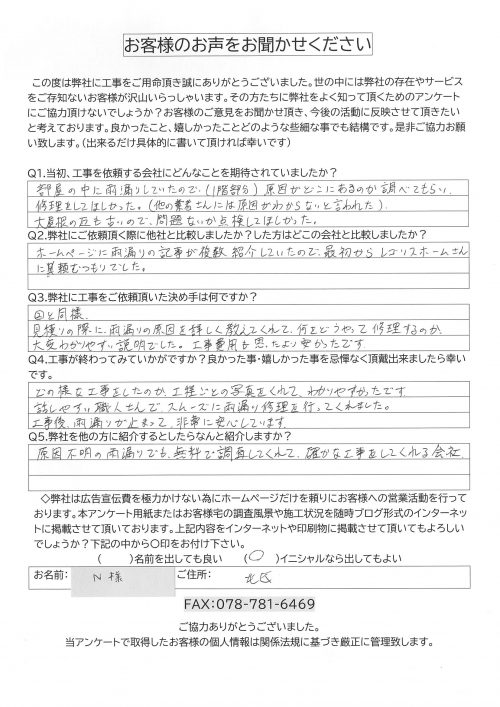 お客様のお声をお聞かせください
この度は弊社に工事をご用命頂き誠にありがとうございました。世の中には弊社の存在やサービス
をご存知ないお客様が沢山いらっしゃいます。その方たちに弊社をよく知って頂くためのアンケート
にご協力頂けないでしょうか?お客様のご意見をお聞かせ頂き、今後の活動に反映させて頂きたい
と考えております。良かったこと、嬉しかったことどのような些細な事でも結構です。是非ご協力お願
い致します。(出来るだけ具体的に書いて頂ければ幸いです)
Q1.当初、工事を依頼する会社にどんなことを期待されていましたか?
部屋の中に雨漏りしていたので、(1階部分) 原因がどこにあるのか調べてもらい、
修理をしてほしかった。(他の業者さんには原因がわからないと言われた).
大屋根の瓦も古いので、問題ないか点検してほしかった。
Q2.弊社にご依頼頂く際に他社と比較しましたか?した方はどこの会社と比較しましたか?
ホームページに雨漏りの記事が複数紹介していたので、最初からレコリスホームさん
に依頼むつもりでした。
Q3.弊社に工事をご依頼頂いた決め手は何ですか?
②と同様.
見積りの際に、雨漏りの原因を詳しく教えてくれて、何をどうやって修理するのか、
大変わかりやすい説明でした。工事費用も思ったより安かったです.
Q4.工事が終わってみていかがですか?良かった事・嬉しかった事を忌憚なく頂戴出来ましたら幸い
です。
どの様な工事をしたのか、工程ごとの写真をくれて、わかりやすかったです
話しやすい職人さんで、スムーズに雨漏り修理を行ってくれました。
工事後、雨漏りが止まって、非常に安心しています.
Q5.弊社を他の方に紹介するとしたらなんと紹介しますか?
原因不明の雨漏りでも、無料で調査してくれて、確かな工事をしてくれる会社.
◇弊社は広告宣伝費を極力かけない為にホームページだけを頼りにお客様への営業活動を行って
おります。本アンケート用紙またはお客様宅の調査風景や施工状況を随時ブログ形式のインターネッ
トに掲載させて頂いております。上記内容をインターネットや印刷物に掲載させて頂いてもよろしい
でしょうか?下記の中から〇印をお付け下さい。
( )名前を出しても良い (○)イニシャルなら出してもよい
お名前: N 様 ご住所: 北区
FAX:078-781-6469
ご協力ありがとうございました。
当アンケートで取得したお客様の個人情報は関係法規に基づき厳正に管理致します。